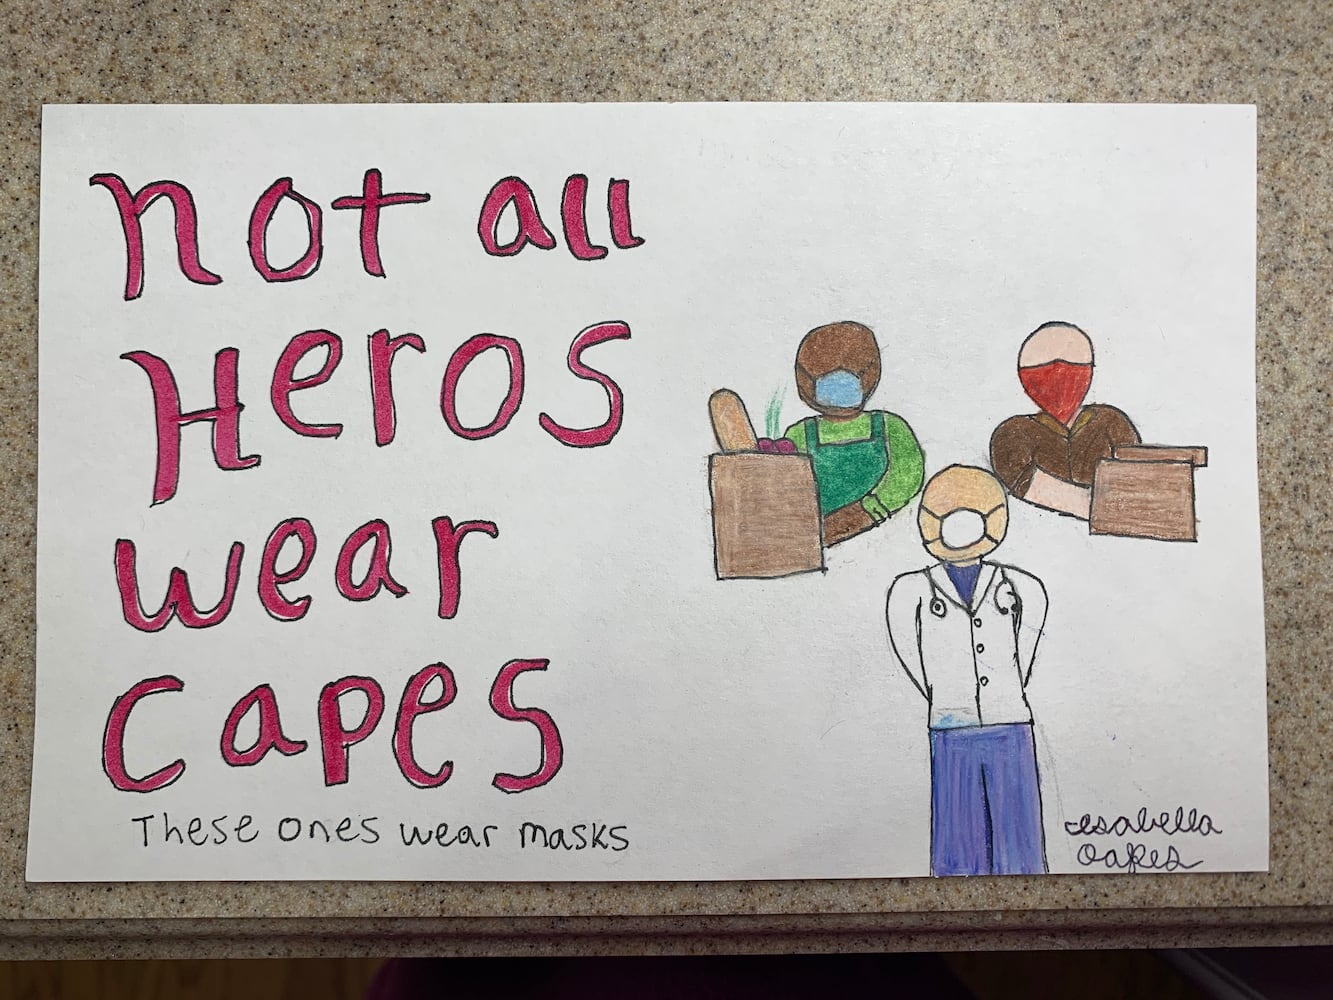 not all
Heros
wear
capes
These ones wear masks
Isabella
Oakes